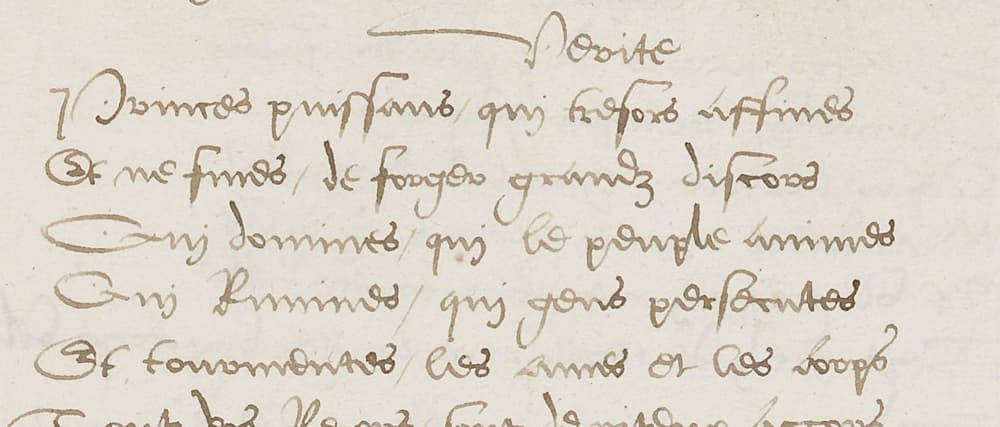 Verite
Princes puissans / qui tresors affines
Et ne fines / de forger grandz discors
Qui domines / qui le peuple animes
Qui Rumines / qui gens persecutes
Et tourmentes / les ames et les corps